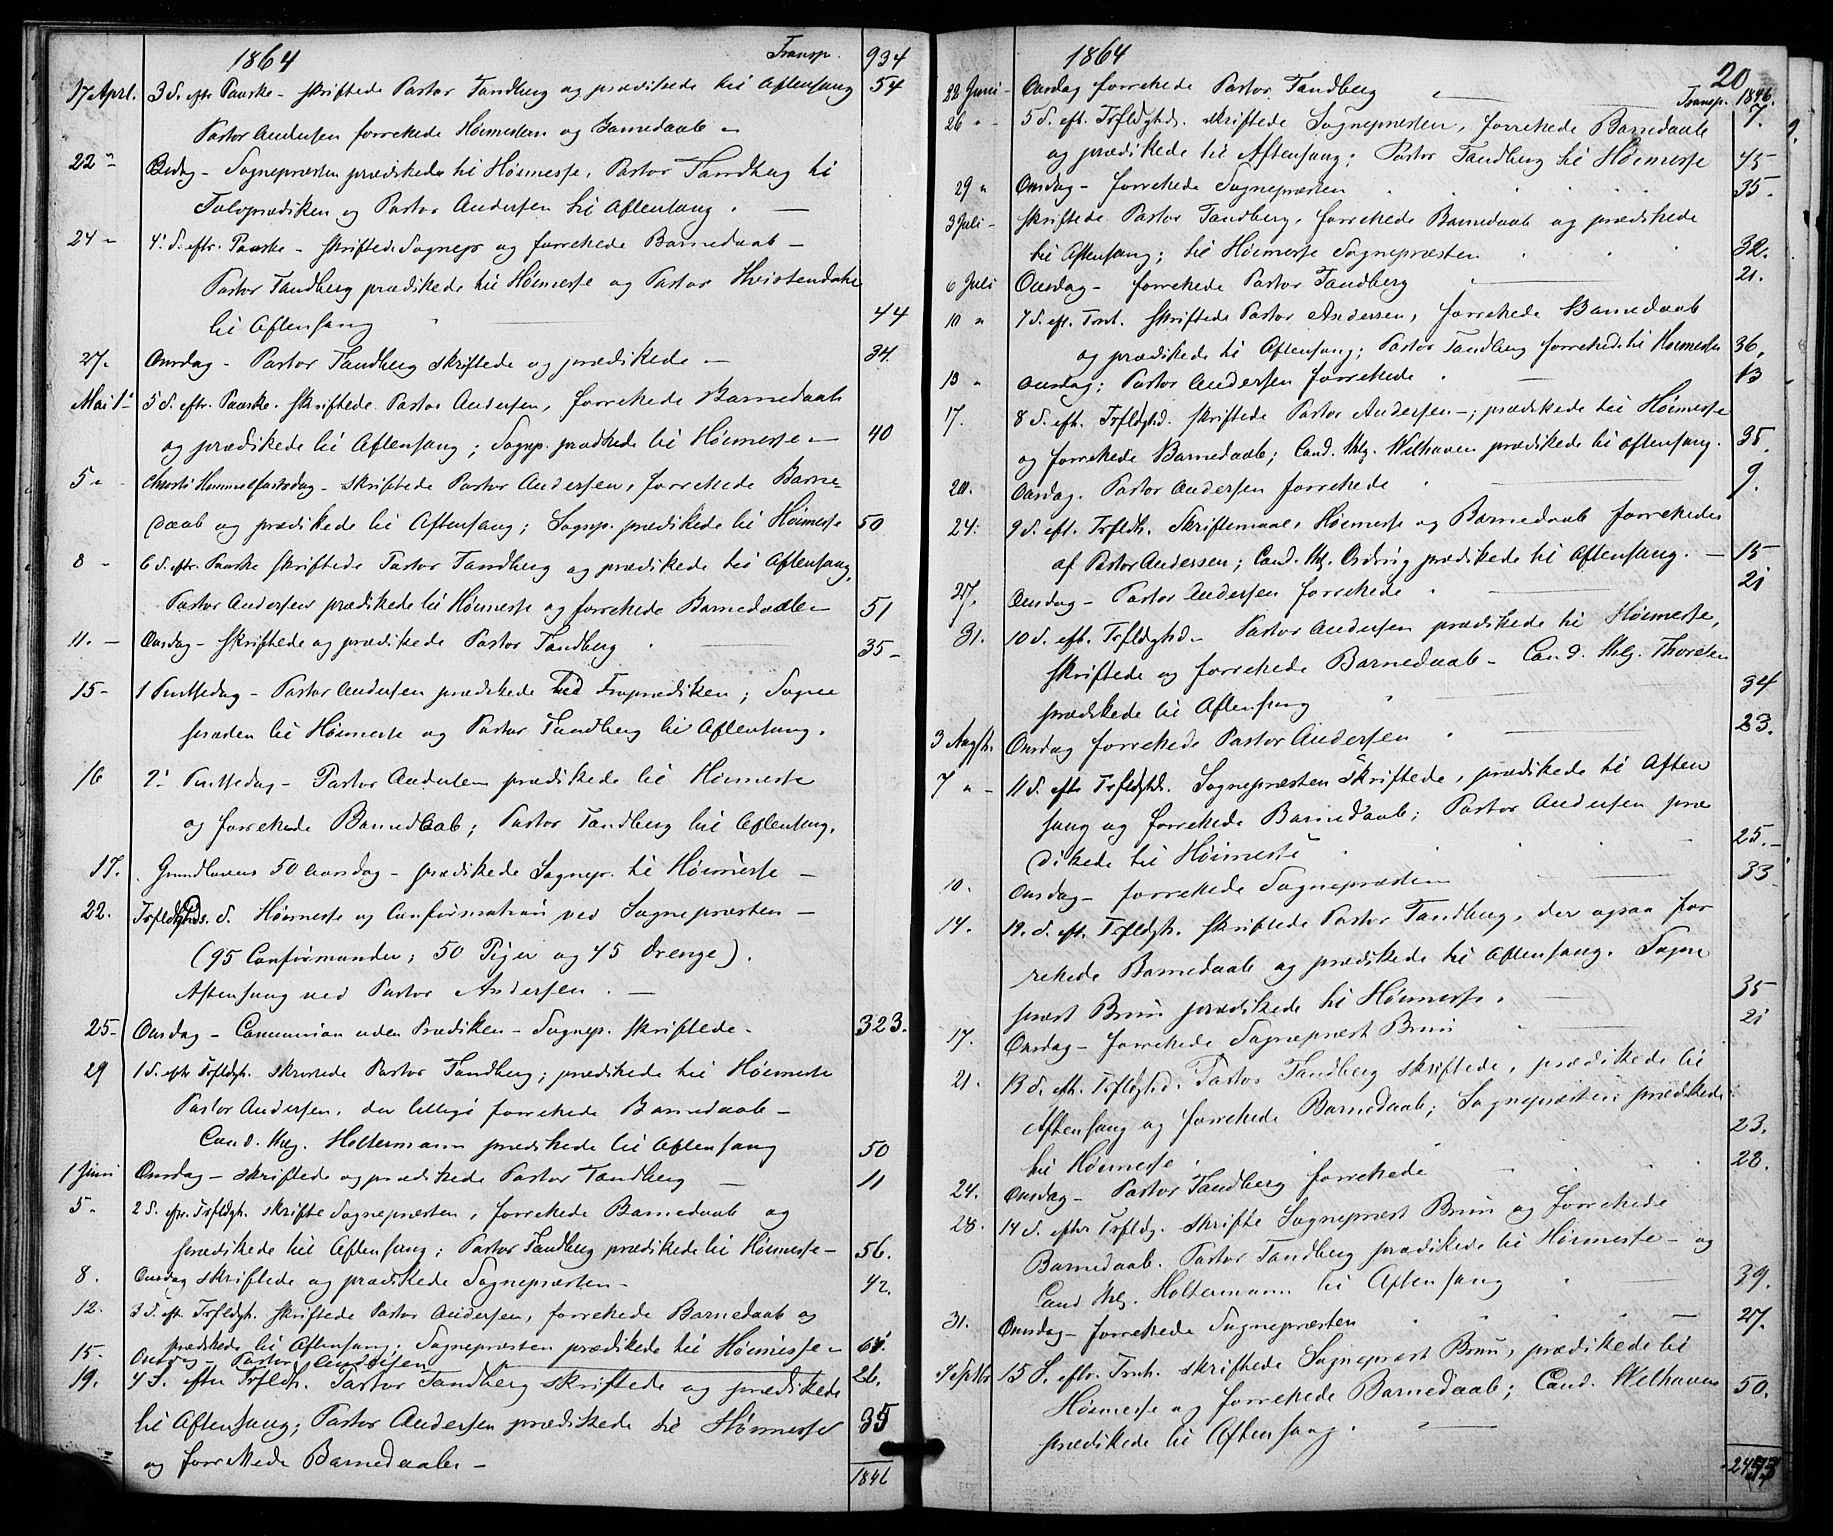 1864 Transp. 934
17 Aprl. 3 S. eftr Paaske - skriftede Pastor Tandberg og prædikede til Aftensang 54
Pastor Andersen forrettede Høimessen og Barnedaab -
22 " Bedag - Sognepræsten prædikede til Høimesse, Pastor Tandberg til
Tolvprædiken og Pastor Andersen til Aftensang. -
24 - 4. S. eftr. Paaske - skriftede Sognepr og forrettede Barnedaab -
Pastor Tandberg prædikede til Høimesse og Pastor Hvistendahl
til Aftensang " 44
27. Onsdag - Pastor Tandberg skriftede og prædikede - 34.
Mai 1. - 5 S. eftr. Paaske. skriftede Pastor Andersen, forrettede Barnedaab
og prædikede til Aftensang; Sognp. prædikede til Høimesse - 40
5 " Christi Himmelfartsdag - skriftede Pastor Andersen, forrettede Barne-
daab og prædikede til Aftensang; Sognp. prædikede til Høimesse 50
8 - 6 S. eftr. Paaske skriftede Pastor Tandberg og prædikede til Aftensang,
Pastor Andersen prædikede til Høimesse og forrettede Barnedaab - 51
11. - Onsdag - skriftede og prædikede Pastor Tandberg 35 -
15 - 1 Pintsedag - Pastor Andersen prædikede ved Froprædiken; Sogne
præsten til Høimesse og Pastor Tandberg til Aftensang.
16 2. Pintsedag - Pastor Andersen prædikede til Høimesse
og forrettede Barnedaab; Pastor Tandberg til Aftensang.
17. Grundlovens 50 Aarsdag - prædikede Sognepr. til Høimesse -
22. Trfldghds. S. Høimesse og Confirmation ved Sognepræsten -
(95 Confirmander; 50 Piger og 45 Drenge).
Aftensang ved Pastor Andersen. -
25 - Onsdag - Communion uden Prædiken - Sognep. skriftede - 323.
29 1 S. eftr Trfldgh. skriftede Pastor Tandberg; prædikede til Høimesse
Pastor Andersen, der tillige forrettede Barnedaab -
Cand. thlg. Holtermann prædikede til Aftensang 50
1 Juni Onsdag - skriftede og prædikede Pastor Tandberg - 11
5 - 2 S. eftr. Trfldgh. skrifte Sognepræsten, forrettede Barnedaab og
prædikede til Aftensang; Pastor Tandberg prædikede til Høimesse - 56.
8. Onsdag skriftede og prædikede Sognepræsten - 42.
12. 3 S. eft. Trfldgh. skriftede Pastor Andersen, forrettede Barnedaab og
prædikede til Aftensang; Sognepræsten prædikede til Høimesse -
15. Onsdag - Pastor Andersen 26.
19. 4 S. eftr Trfldh. Pastor Tandberg skriftede og prædikede
til Aftensang; Pastor Andersen prædikede til Høimesse 35
og forrettede Barnedaab -
1846
1864 20
Transp. 1846.
22 Juni - Onsdag forrettede Pastor Tandberg 7.
26 " - 5 S. eft. Trfldghds. skriftede Sognepræsten, forrettede Barnedaab
og prædikede til Aftensang; Pastor Tandberg til Høimesse 45
29 " Onsdag - forrettede Sognepræsten 35.
3 Juli - skriftede Pastor Tandberg, forrettede Barnedaab og prædikede
til Aftensang; til Høimesse Sognepræsten 32.
6 Juli Onsdag - forrettede Pastor Tandberg 21.
10 " 7 S. eft. Trnt. skriftede Pastor Andersen, forrettede Barnedaab
og prædikede til Aftensang; Pastor Tandberg forrettede til Høimesse 36.
13 " Onsdag; Pastor Andersen forrettede 13
17. 8 S. eft. Trfldghd. skriftede Pastor Andersen -, prædikede til Høimesse
og forrettede Barnedaab; Cand. thlg. Welhaven prædikede til Aftensang. 35.
20. Onsdag. Pastor Andersen forrettede 9.
24. 9 S. eft. Trfldh. Skriftemaal, Høimesse og Barnedaab forrettedes
af Pastor Andersen; Cand. thlg. Ording prædikede til Aftensang. - 15
27. Onsdag - Pastor Andersen forrettede 21
31. 10 S. eft. Trfldghd. - Pastor Andersen prædikede til Høimesse,
skriftede og forrettede Barnedaab - Cand. thlg. Thoresen
prædikede til Aftensang 34
3 Augst. Onsdag forrettede Pastor Andersen 23.
7 " - 11 S. eftr Trfldghd. Sognepræsten skriftede, prædikede til Aften
sang og forrettede Barnedaab; Pastor Andersen præ
dikede til Høimesse 25. -
10. Onsdag - forrettede Sognepræsten 33
14. 12. S. eft. Trfldgh. skriftede Pastor Tandberg, der ogsaa for
rettede Barnedaab og prædikede til Aftensang. Sogne
præst Bruun prædikede til Høimesse. 35
17. Onsdag - forrettede Sognepræst Bruun 21
21. 13 S. eft. Trfldghd. Pastor Tandberg skriftede, prædikede til
Aftensang og forrettede Barnedaab; Sognepræsten prædikede
til Høimesse. 23.
24. Onsdag - Pastor Tandberg forrettede 28.
28. 14 S. eftr Trfldg. skrifte Sognepræst Bruun og forrettede
Barnedaab. Pastor Tandberg prædikede til Høimesse - og
Cand thlg. Holtermann til Aftensang 39.
31. Onsdag - forrettede Sognepræsten 27.
4 Septbr 15 S. eftr. Trnt. skriftede Sognepræst Bruun, prædikede til
Høimesse og forrettede Barnedaab; Cand. Welhaven 50.
prædikede til Aftensang.